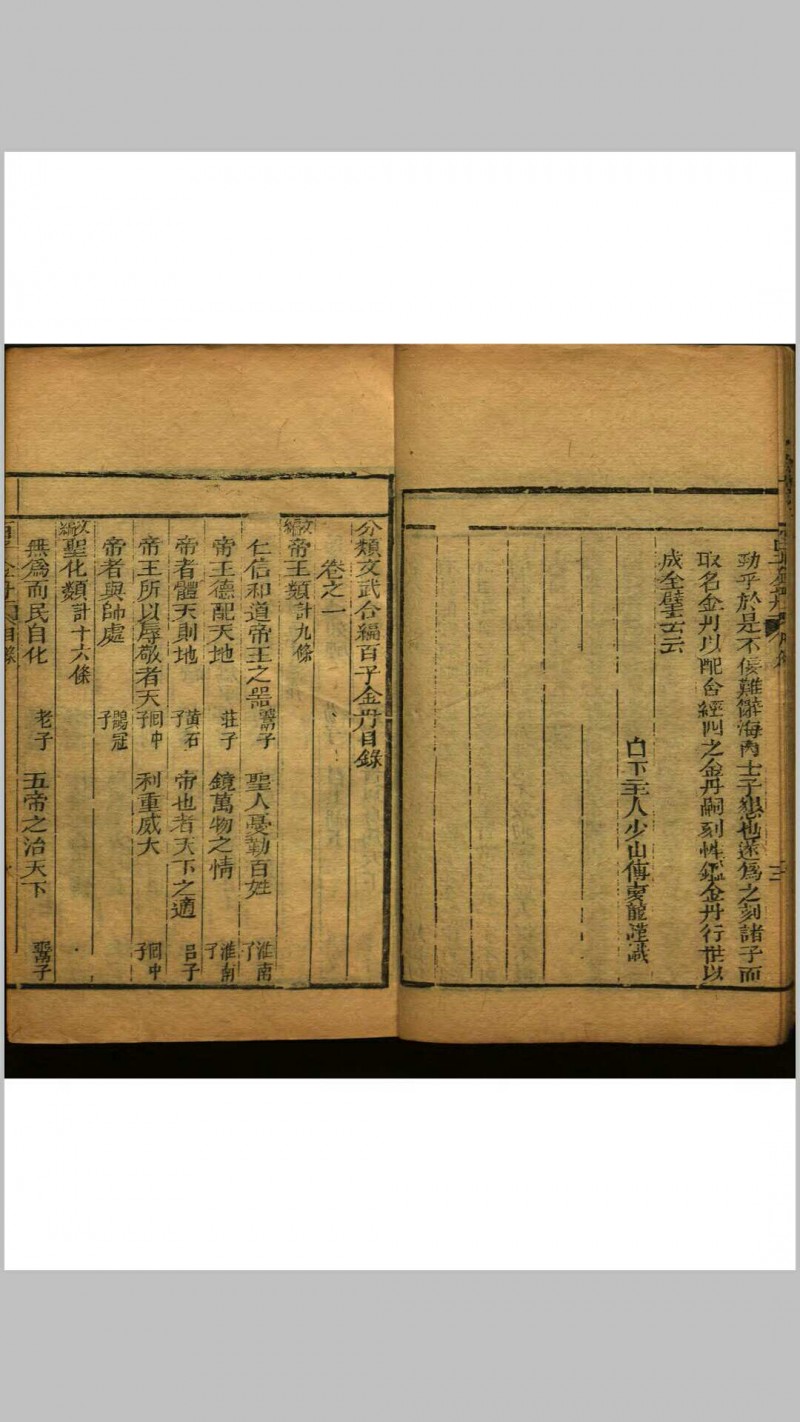 劻乎於是不佞難辭海內士子懇也遂爲之刻諸子而
取名金丹以配合經四之金丹嗣刻性鑑金丹行世以
成全璧云云
白下主人少山傅夢龍謹識
分類文武合編百子金丹目錄
卷之一
文編 帝王類 計九條
仁信和道帝王之器 鬻子 聖人憂勤百姓 淮南子
帝王德配天地 莊子 鏡萬物之情 淮南子
帝者體天則地 黃石子 帝也者天下之適 呂子
帝王所以尊敬者天 回中子 利重威大 回中子
帝者與師處 鶡冠子
文編 聖化類 計十六條
無爲而民自化 老子 五帝之治天下 鬻子
百子金丹 目錄